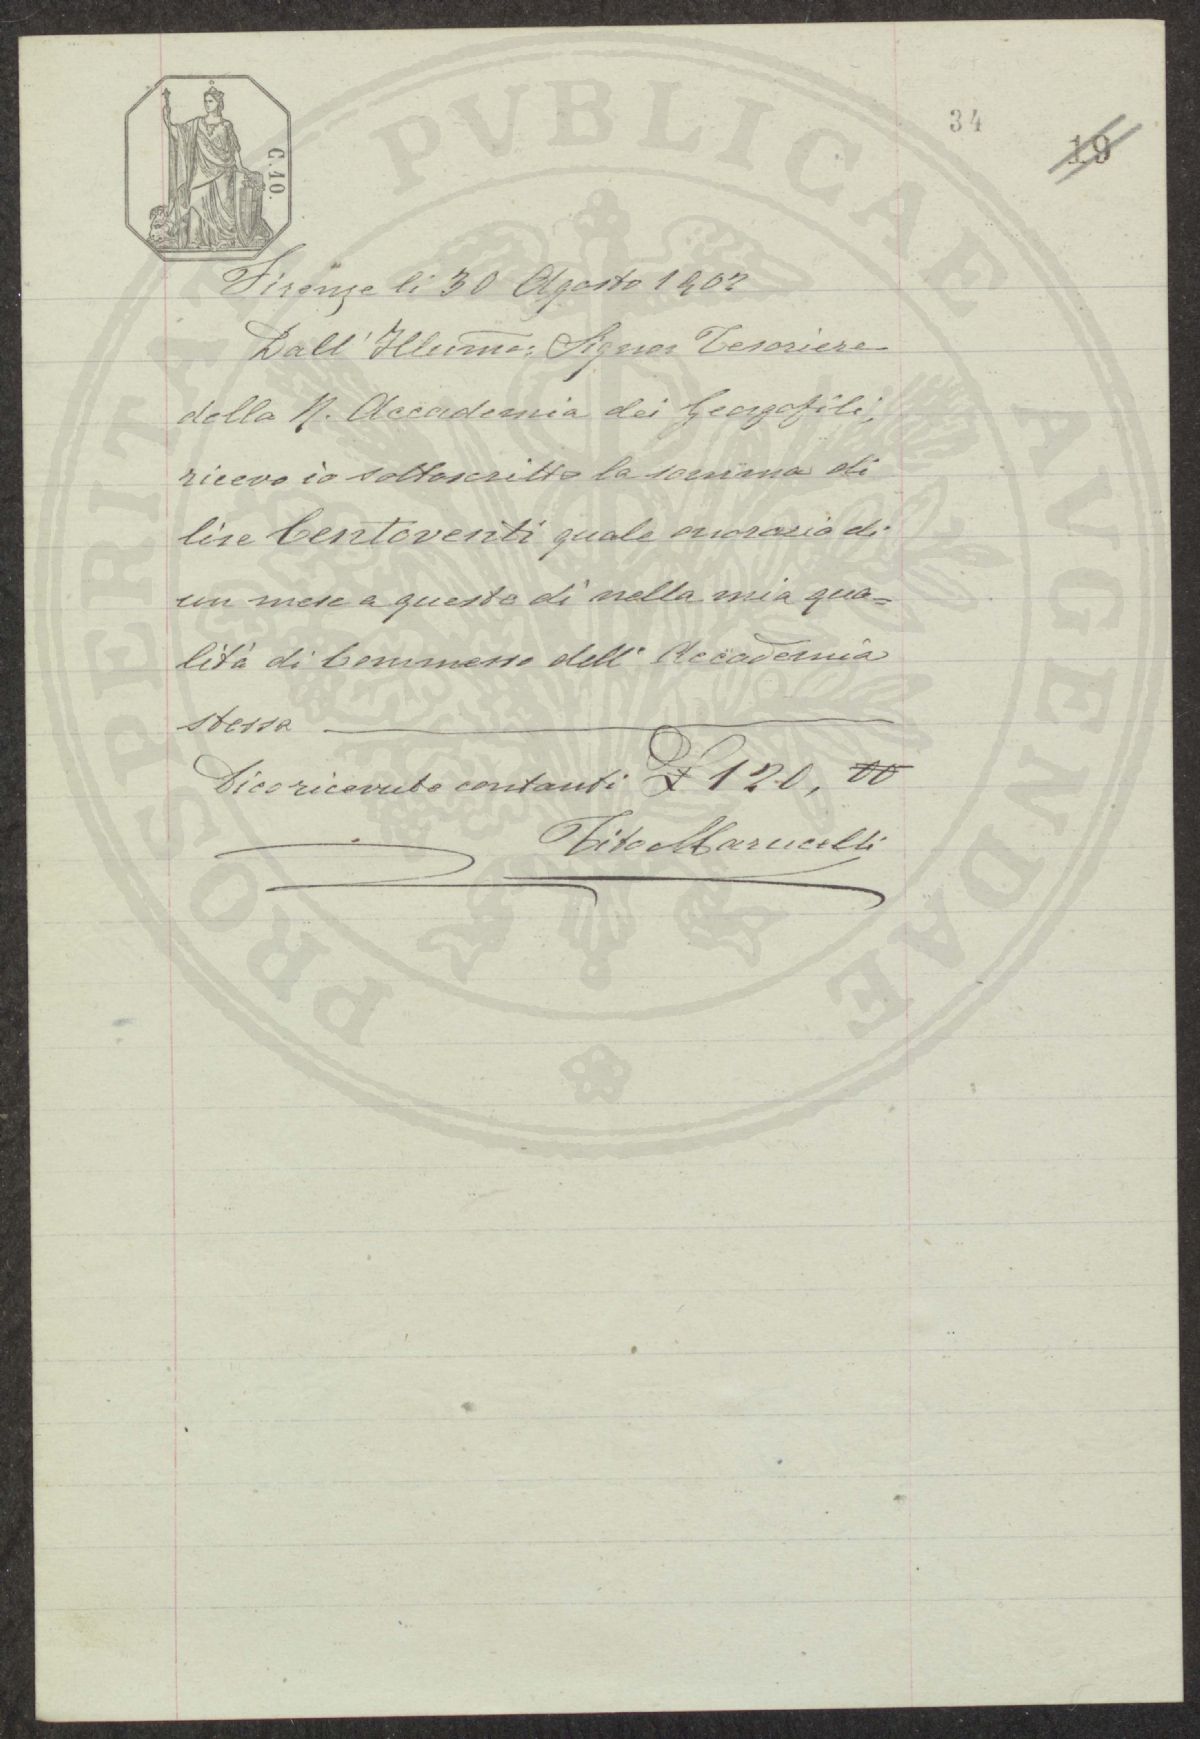 34
19
C. 10.
PROSPERITATI PVBLICAE AVGENDAE
Firenze li 30 Agosto 1902
Dall' Illumo: Signor Tesoriere
della R. Accademia dei Georgofili,
ricevo io sottoscritto la somma di
lire Centoventi quale onorario di
un mese a questo dì nella mia qua=
lità di Commesso dell' Accademia
stessa
Dico ricevute contanti £ 120, 00
Tito Marucelli